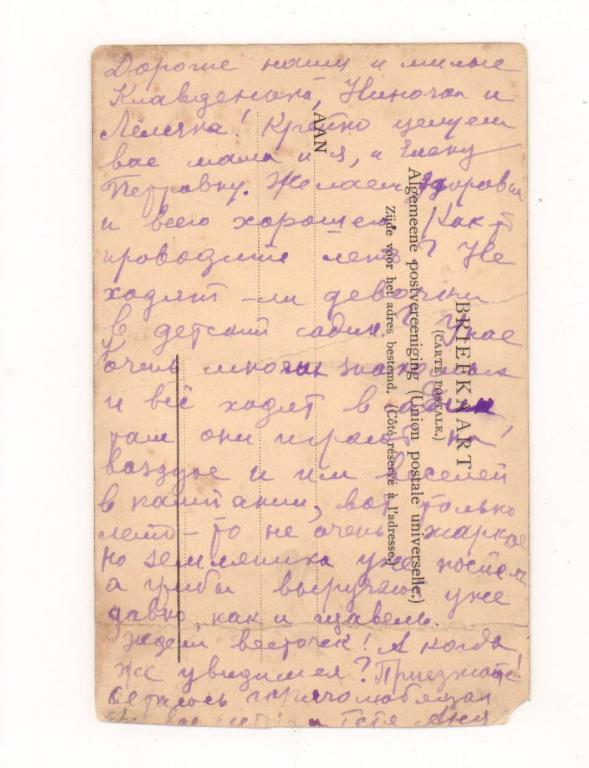 Дорогие наши и милые
Клавденька, Ниночка и
Лёлечка! Крепко целуем
вас мама и я, и Елену
Петровну. Желаем здоровья
и всего хорошего. Как
проводите лето? Не
ходят-ли девочки
в детский садик. У нас
очень многие
и всё ходят в садик
там они играют на
воздухе и им веселей
в компании, вот только
лето-то не очень жаркое
но земляника уже поспела
а грибы выручают уже
давно, как и щавель.
Ждем весточек! А когда
же увидимся? Приезжайте!
Остаюсь горячо любящая
вас и тетя Аня
AAN
BRIEFKAART
(CARTE POSTALE.)
Algemeene postvereeniging (Union postale universelle.)
Zijde voor het adres bestemd. (Côté réservé à l'adresse.)